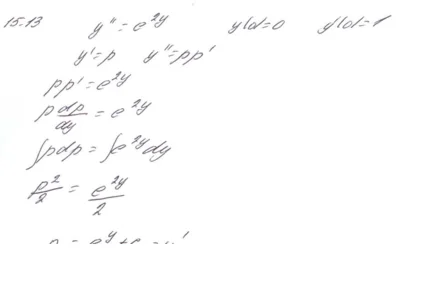 15.13 y'' = e^{2y} y(0)=0 y'(0)=1
y'=p y''=pp'
pp'=e^{2y}
p dp/dy = e^{2y}
∫pdp = ∫e^{2y}dy
p²/2 = e^{2y}/2